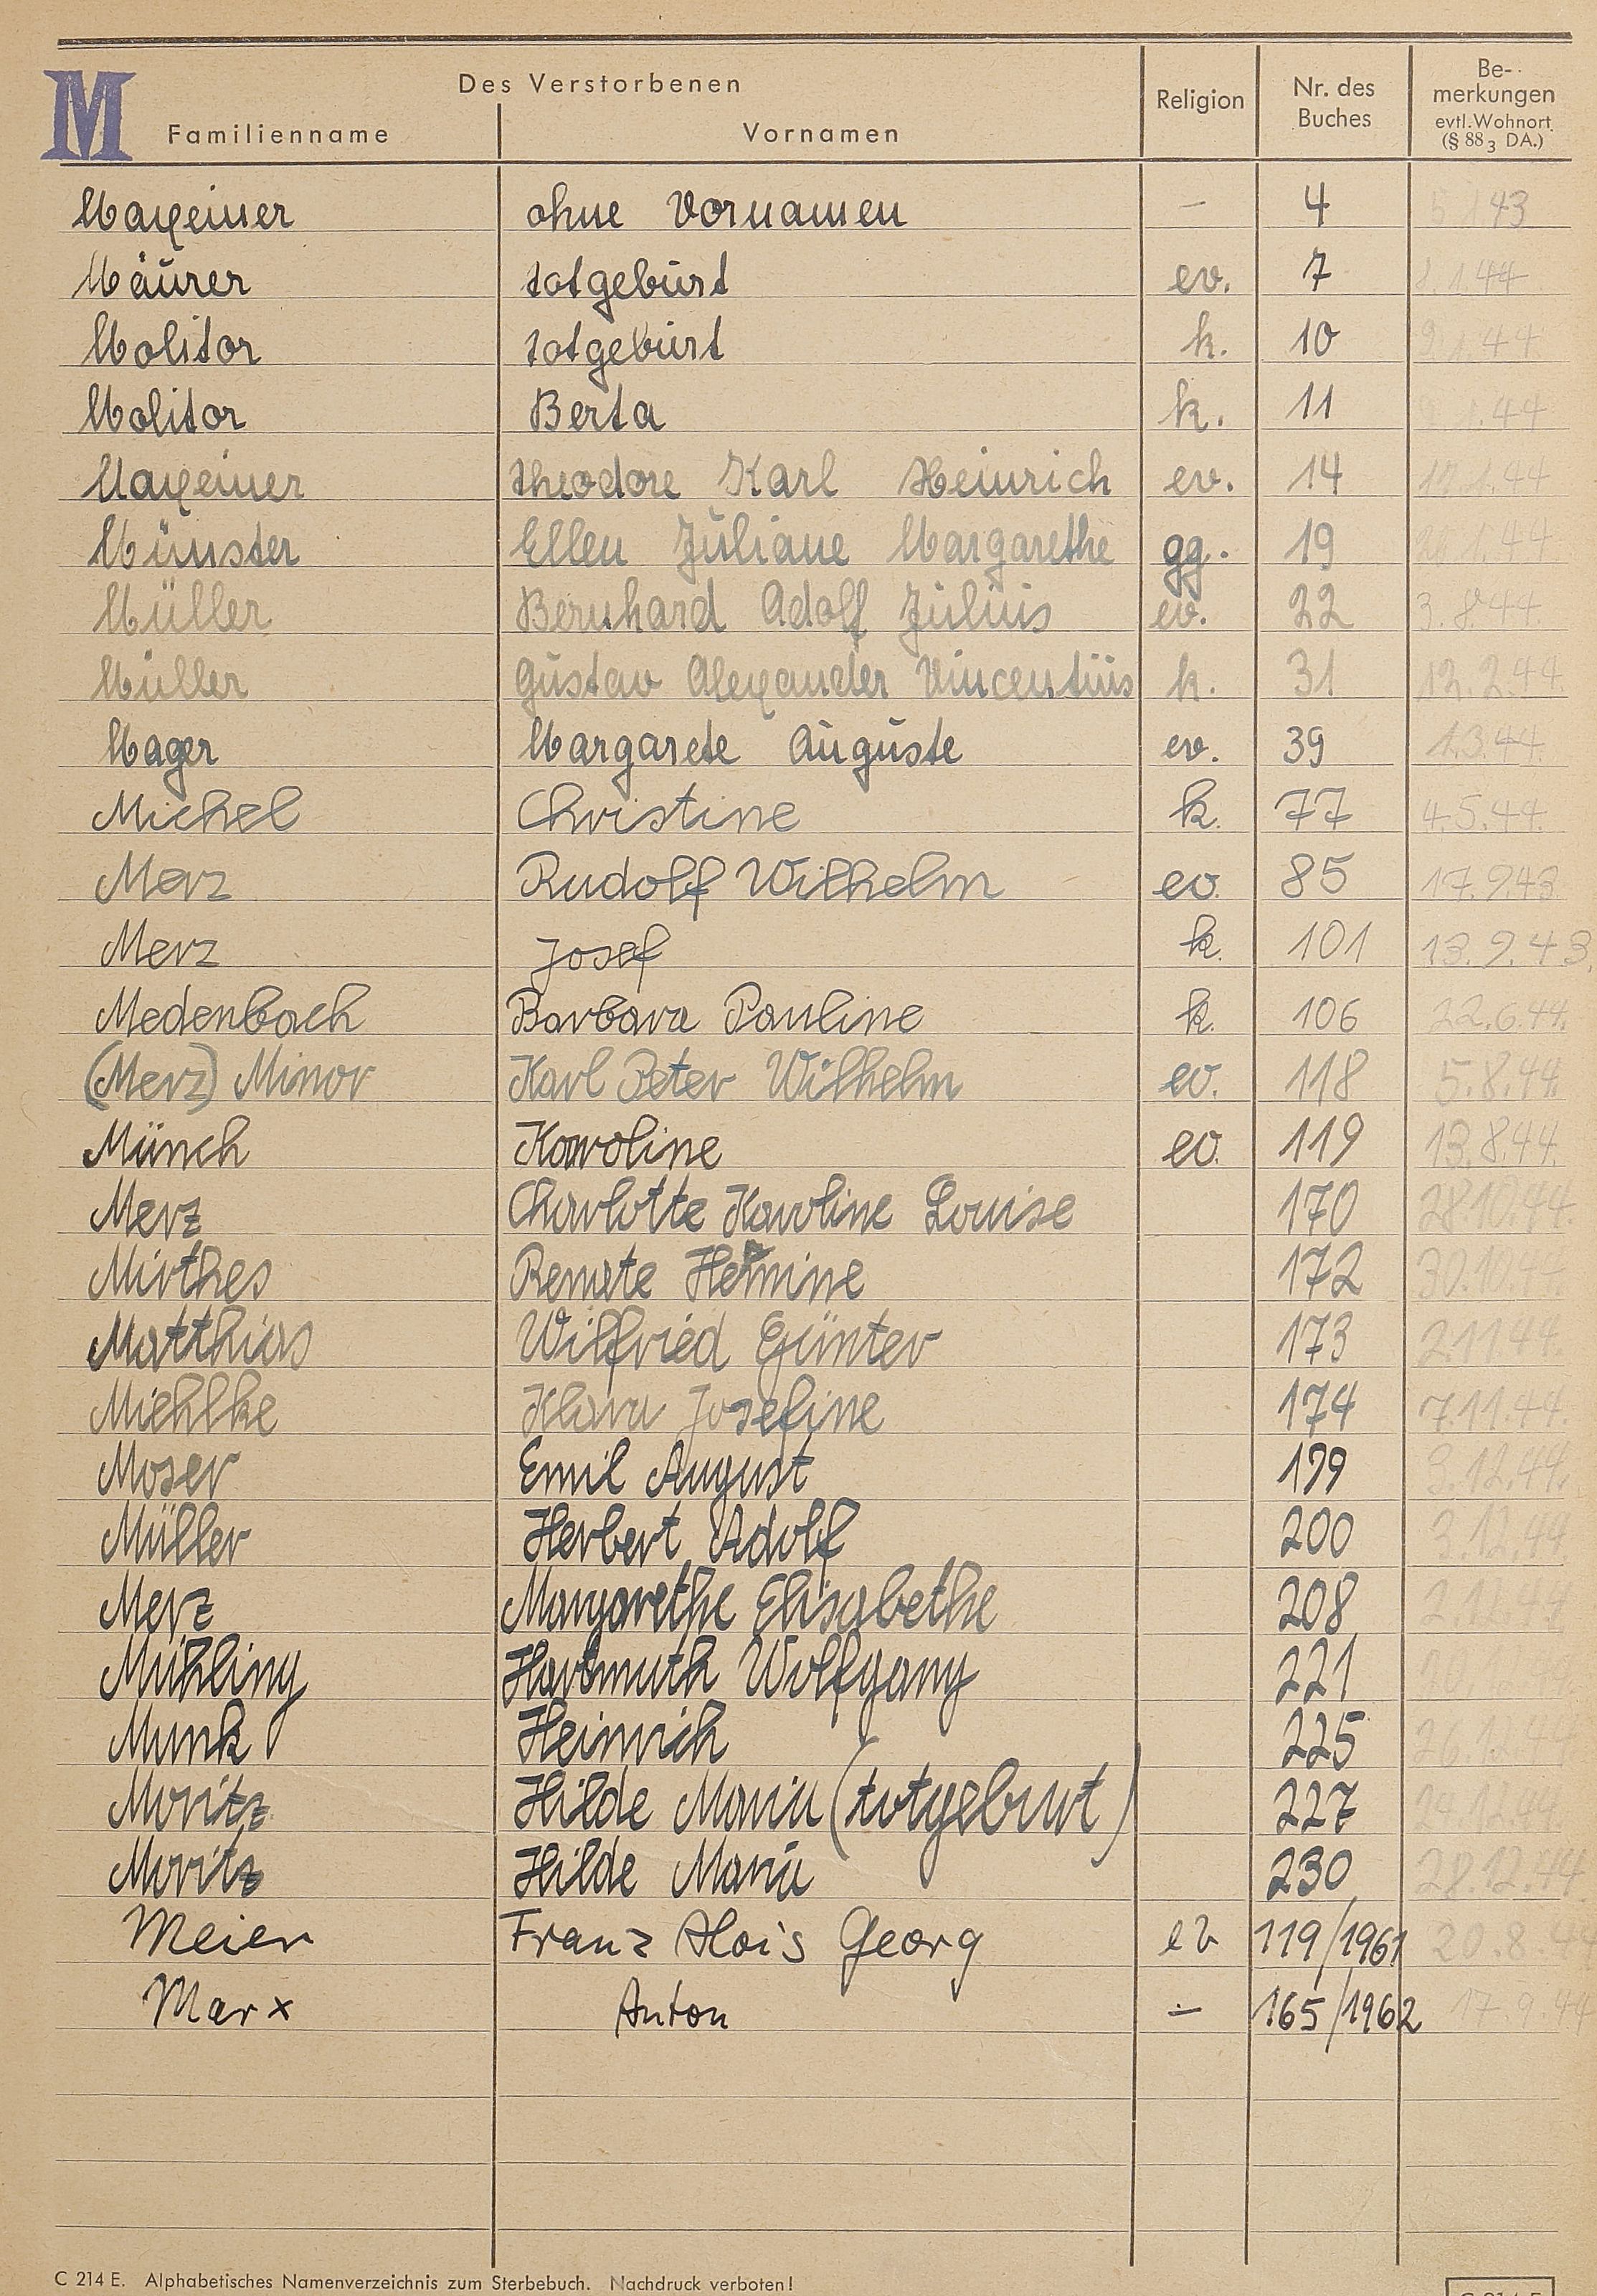 M
Des Verstorbenen
Familienname Vornamen Religion Nr. des Buches Be-merkungen evtl. Wohnort (§ 88 3 DA.)
Maxeiner ohne Vornamen — 4 43
Mäurer totgeburt ev. 7 8.1.44
Molitor totgeburt k. 10 9.1.44
Molitor Berta k. 11 9.1.44
Maxeiner Theodore Karl Heinrich ev. 14 1.44
Münster Ellen Juliane Margarethe gg. 19 1.44
Müller Bernhard Adolf Julius ev. 22 3. 44.
Müller Gustav Alexander Vincentius k. 31 12.2.44.
Mager Margarete Auguste ev. 39 1.3.44.
Michel Christine k. 77 4.5.44.
Merz Rudolf Wilhelm ev. 85 17.9.43.
Merz Josef k. 101 13.9.43.
Medenbach Barbara Pauline k. 106 22.6.44.
(Merz) Minor Karl Peter Wilhelm ev. 118 5.8.44.
Münch Karoline ev. 119 13.8.44.
Merz Charlotte Karoline Louise 170 28.10.44.
Mirthes Renate Hermine 172 30.10.44.
Matthias Wilfried Günter 173 2.11.44.
Miehlke Klara Josefine 174 7.11.44.
Moser Emil August 199 3.12.44.
Müller Herbert Adolf 200 3.12.44.
Merz Margarethe Elisabethe 208 2.12.44
Mühling Hartmuth Wolfgang 221
Munk Heinrich 225 26.12.44
Moritz Hilde Maria (totgeburt) 227 12.44
Moritz Hilde Maria 230 28.12.44.
Meier Franz Alois Georg ev 119/1961 20.8.44
Marx Anton — 165/1962 17.9.44
C 214 E. Alphabetisches Namenverzeichnis zum Sterbebuch. Nachdruck verboten!